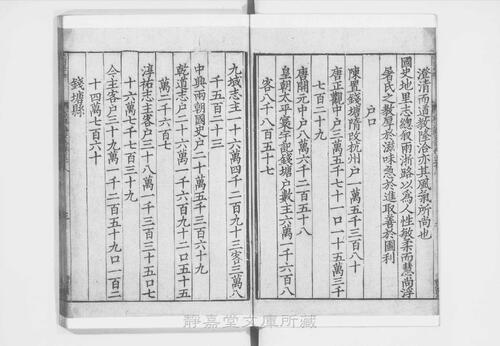 澄清而道教隆洽亦其風氣所尚也
國史地里志總叙兩浙路以為人性敏柔而慧尚浮
屠氏之教厚於滋味急於進取善於圖利
戶口
陳置錢塘隋改杭州戶一萬五千三百八十
唐正觀中戶三萬五千七十一口一十五萬三千
七百二十九
唐開元中戶八萬六千二百五十八
皇朝太平寰宇記錢塘戶數主六萬一千六百八
客八千八百五十七
九域志主一十六萬四千二百九十三客三萬八
千五百二十三
中興兩朝國史戶二十萬五千三百六十九
乾道志戶二十六萬一千六百九十二口五十五
萬二千六百七
淳祐志主客戶三十八萬一千三百三十五口七
十六萬七千七百三十九
今主客戶三十九萬一千二百五十九口一百二
十四萬七百六十
錢塘縣
靜嘉堂文庫所藏